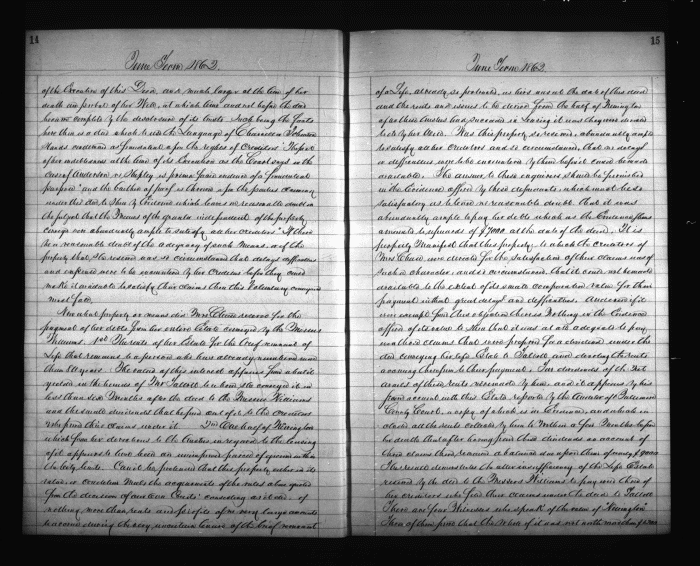 14
June Term 1862.
of the Creation of this Deed, and much larger at the time of her
death and probate of her Will, at which time and not before the deed
became complete by the
here then is a deed which to use the Language of Chancellor Johnson
Stands condemned as fraudulent as to the rights of Creditors
of her indebtedness at the time of its Execution as the Court says in the
case of Anderson vs is prima facie evidence of a fraudulent
purpose" and the burthen of proof is thrown upon the parties claiming
under this deed to Show by Evidence which leaves no reasonable doubt on
the subject that the Means of the grantor independent of the property
conveyed was abundantly ample to satisfy all her creditors" If there
be a reasonable doubt of the adequacy of such Means, or if the
property that she reserved was so circumstanced that delays difficulties
and expense were to be encountered by her Creditors before they could
make it available to satisfy their claims then this Voluntary conveyance
must fail.
Now what property or means did Mrs reserve for the
payment of her debts from her entire Estate conveyed by the Messrs
Williams. 1st The rents of her Estate for the brief remnant of
Life that remains to a person who has already numbered more
than years. The value of this interest appears from what it
yielded in the hands of Mr Talcott to whom she conveyed it in
less than six Months after the deed to the Messrs Williams
was the small dividends that he paid out of it to the creditors
who filed their claims under it 2nd One half of Newington
which from her devotions to the in regard to the
of it appears to have been an unimproved parcel of ground within
the City limits. Can it be pretended that this property either in its
value or condition Meets the requirements of the rules above quoted
from the decision of our own Courts" consisting as it did of
nothing more than rents and profits of no very large amounts
to accrue during the very uncertain tenure of the brief remnant
15
June Term 1862.
of a Life, already, so protracted, as hers was at the date of this deed
and the rents and issues to be derived from the half of Newington
after these Trustees had succeeded in leasing it as they were
to do by her deed. Was this property so reserved, abundantly ample
to satisfy all her creditors and so circumstanced, that no delays
or difficulties were to be encountered by them before it could be made
available. The answer to these enquiries should be furnished
in the Evidence offered by these defendants which must be so
satisfactory as to leave no reasonable doubt that it was
abundantly ample to pay her debts which as the Evidence shows
amounted to upwards of $7000 at the date of the deed. It is
properly Manifest that this property to which the creditors of
Mrs were directed for the satisfaction of their claims was of
such a character, and so circumstanced, that it could not be made
available to the extent of its whole comparative value for their
payment without great delays and difficulties. And even if it
were exempt from this objection there is Nothing in the Evidence
offered of its value to Show that it was at all adequate to pay
even those claims that were proposed for a dividend under the
deed conveying her life Estate to Talcott and devoting the rents
accruing therefrom to their payment. Two dividends of the Net
amount of these rents were made by him, and it appears by his
final account with this Estate reported by the Auditor of Baltimore
County Court, a copy of which is in Evidence, and which in
cludes all the rents collected by him to within a few Months before
her death that after having paid those dividends on account of
these claims there remained a balance due upon them of nearly $9000
This result demonstrates the utter insufficiency of the Life Estate
reserved by the deed to the Messrs Williams to pay even those of
her creditors who filed their claims under the deed to Talcott
There are four Witnesses who speak of the value of "Newington"
Three of them prove that the whole of it was not worth more than